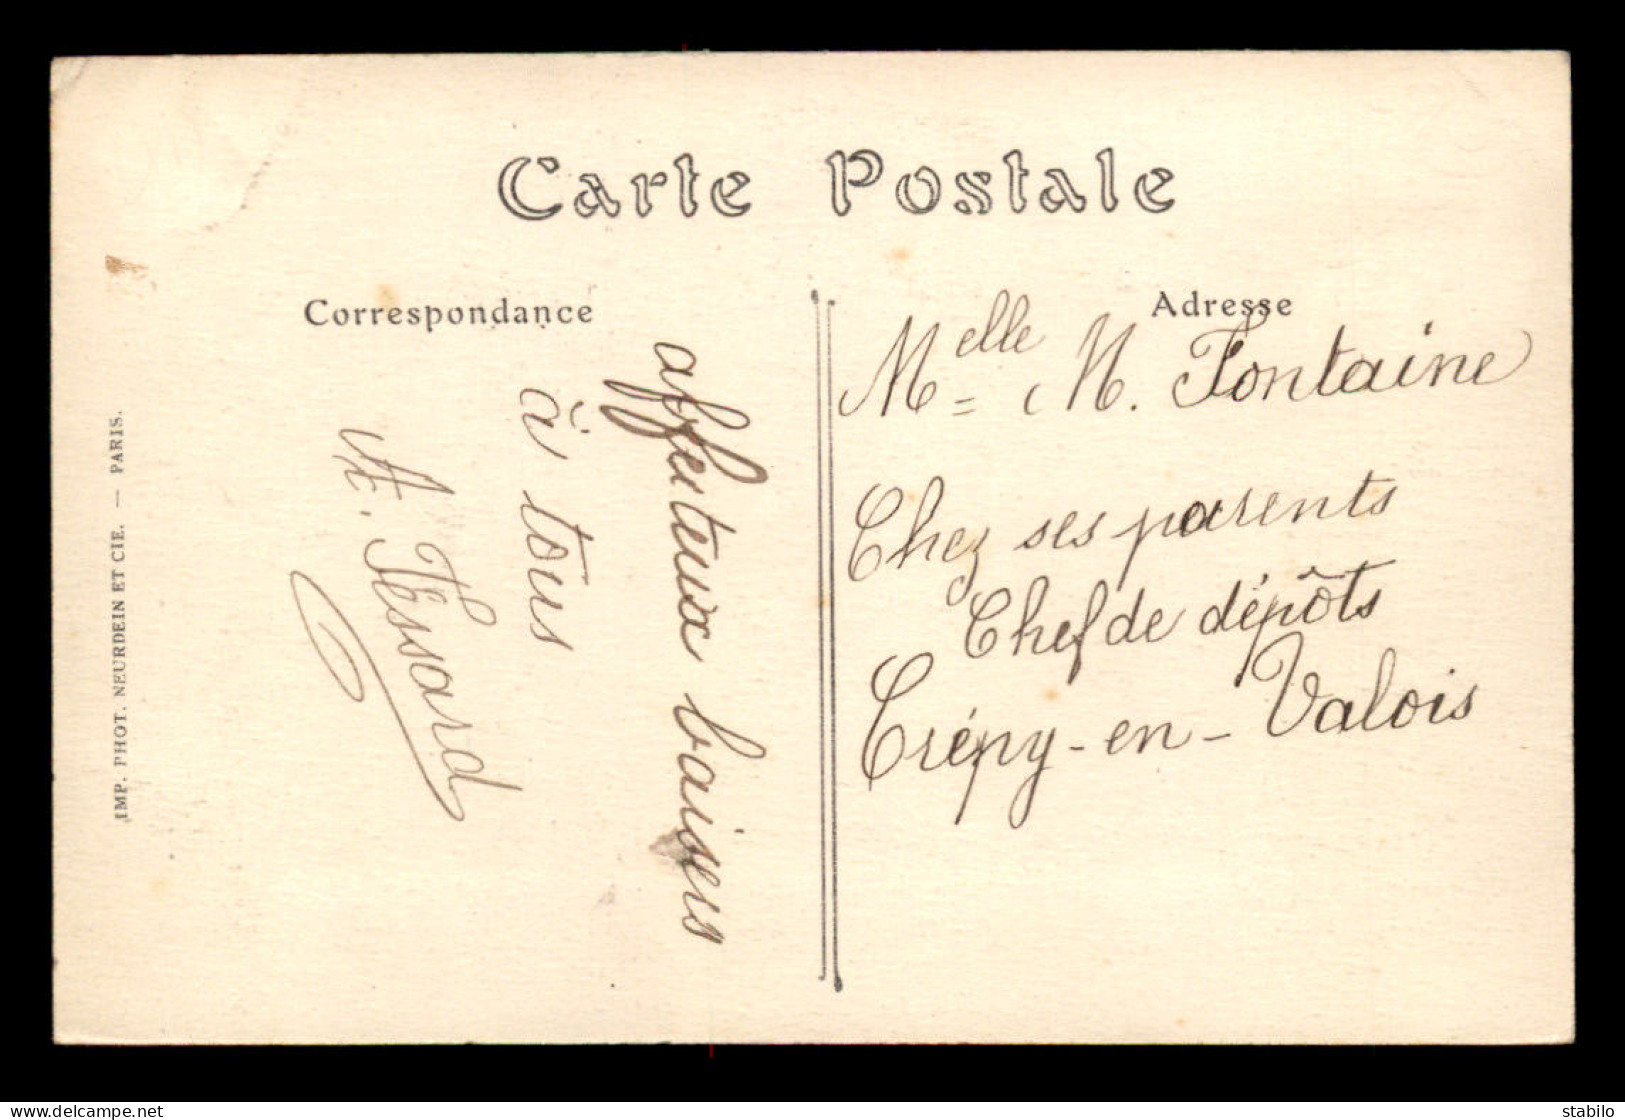 Carte Postale
Correspondance
Adresse
affectueux baisers
à tous
Melle M. Fontaine
Chez ses parents
Chef de dépôts
Crépy-en-Valois
IMP. PHOT. NEURDEIN ET CIE. — PARIS.
stabilo